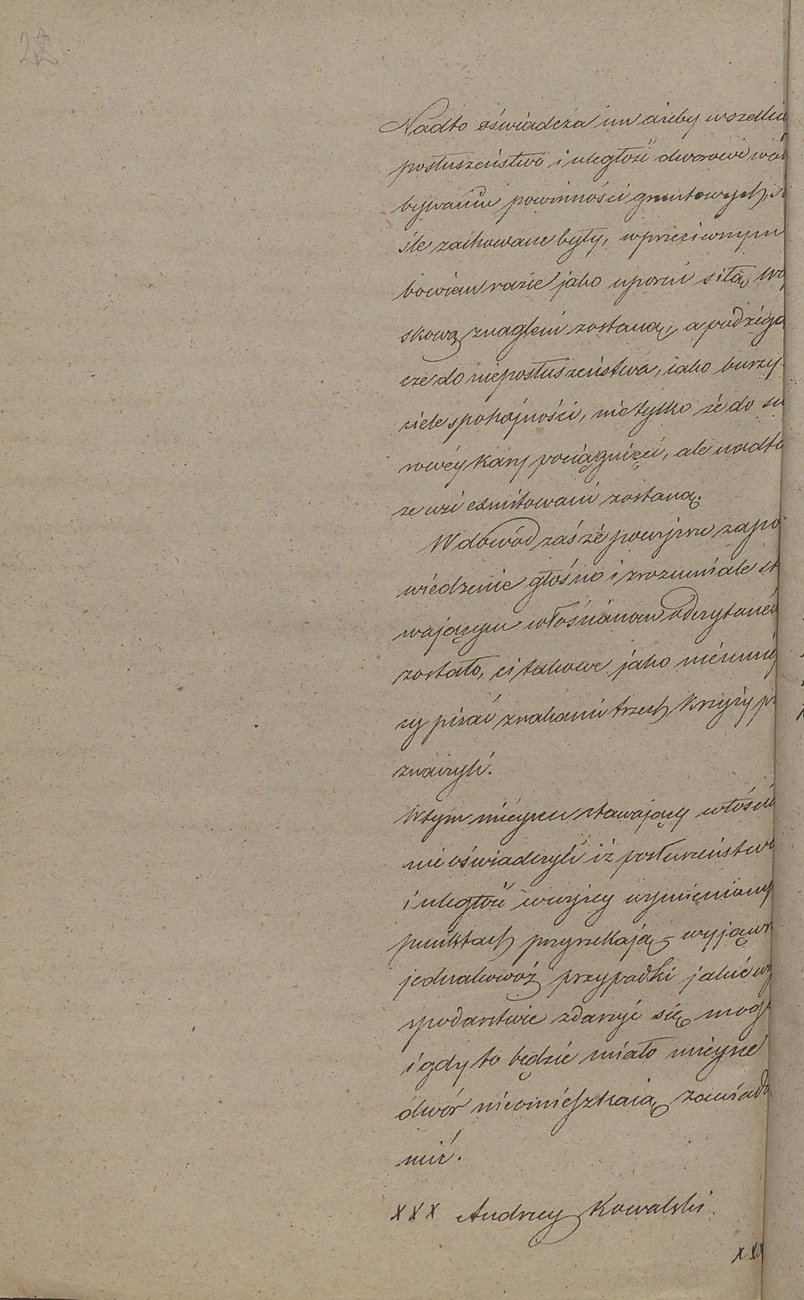 22
Nadto oświadcza im ażeby wszelkie
posłuszeństwo i uległość dworowi w od
bywaniu powinności gruntowych, ś
śle zachowane były, w przeciwnym
bowiem razie jako uporni siłą wo
skową znagleni zostaną, a podżega
cze do nieposłuszeństwa, iako burzy
ciele spokojności, nie tylko że do su
rowéy kary pociągnięci, ale nadto
ze wsi exmitowani zostaną.
W dowód zaś że powyższe zapo
wiedzenie głośno i zrozumiale st
wającym włościanom odczytané
zostało, ci takowe jako nieumié
cy pisać znakami trzech krzyży p
znaczyli.
W tym miéyscu stawający włościa
nie oświadczyli iż posłuszeństwo
i uległość w wyżey wymieniony
punktach przyrzekają – wyjąws
jednakowoż przypadki jakie w g
spodarstwie zdarzyć się mogą
i gdy to będzie miało mieysce
dwór nieomieszkaią zawiado
mić.
xxx Andrzey Kowalski.
xxx